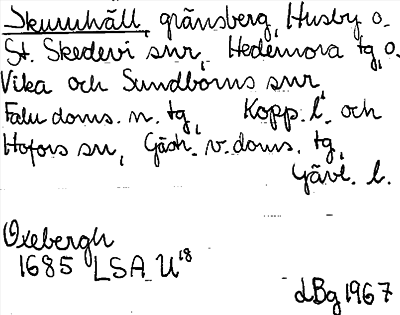 Skumhäll, gränsberg, Husby o.
St. Skedevi snr, Hedemora tg, o.
Vika och Sundborns snr,
Falu doms. n. tg, Kopp. l. och
Hofors sn, Gästr. v. doms. tg,
Gävl. l.
Oxebergh
1685 LSA U18
dBg 1967